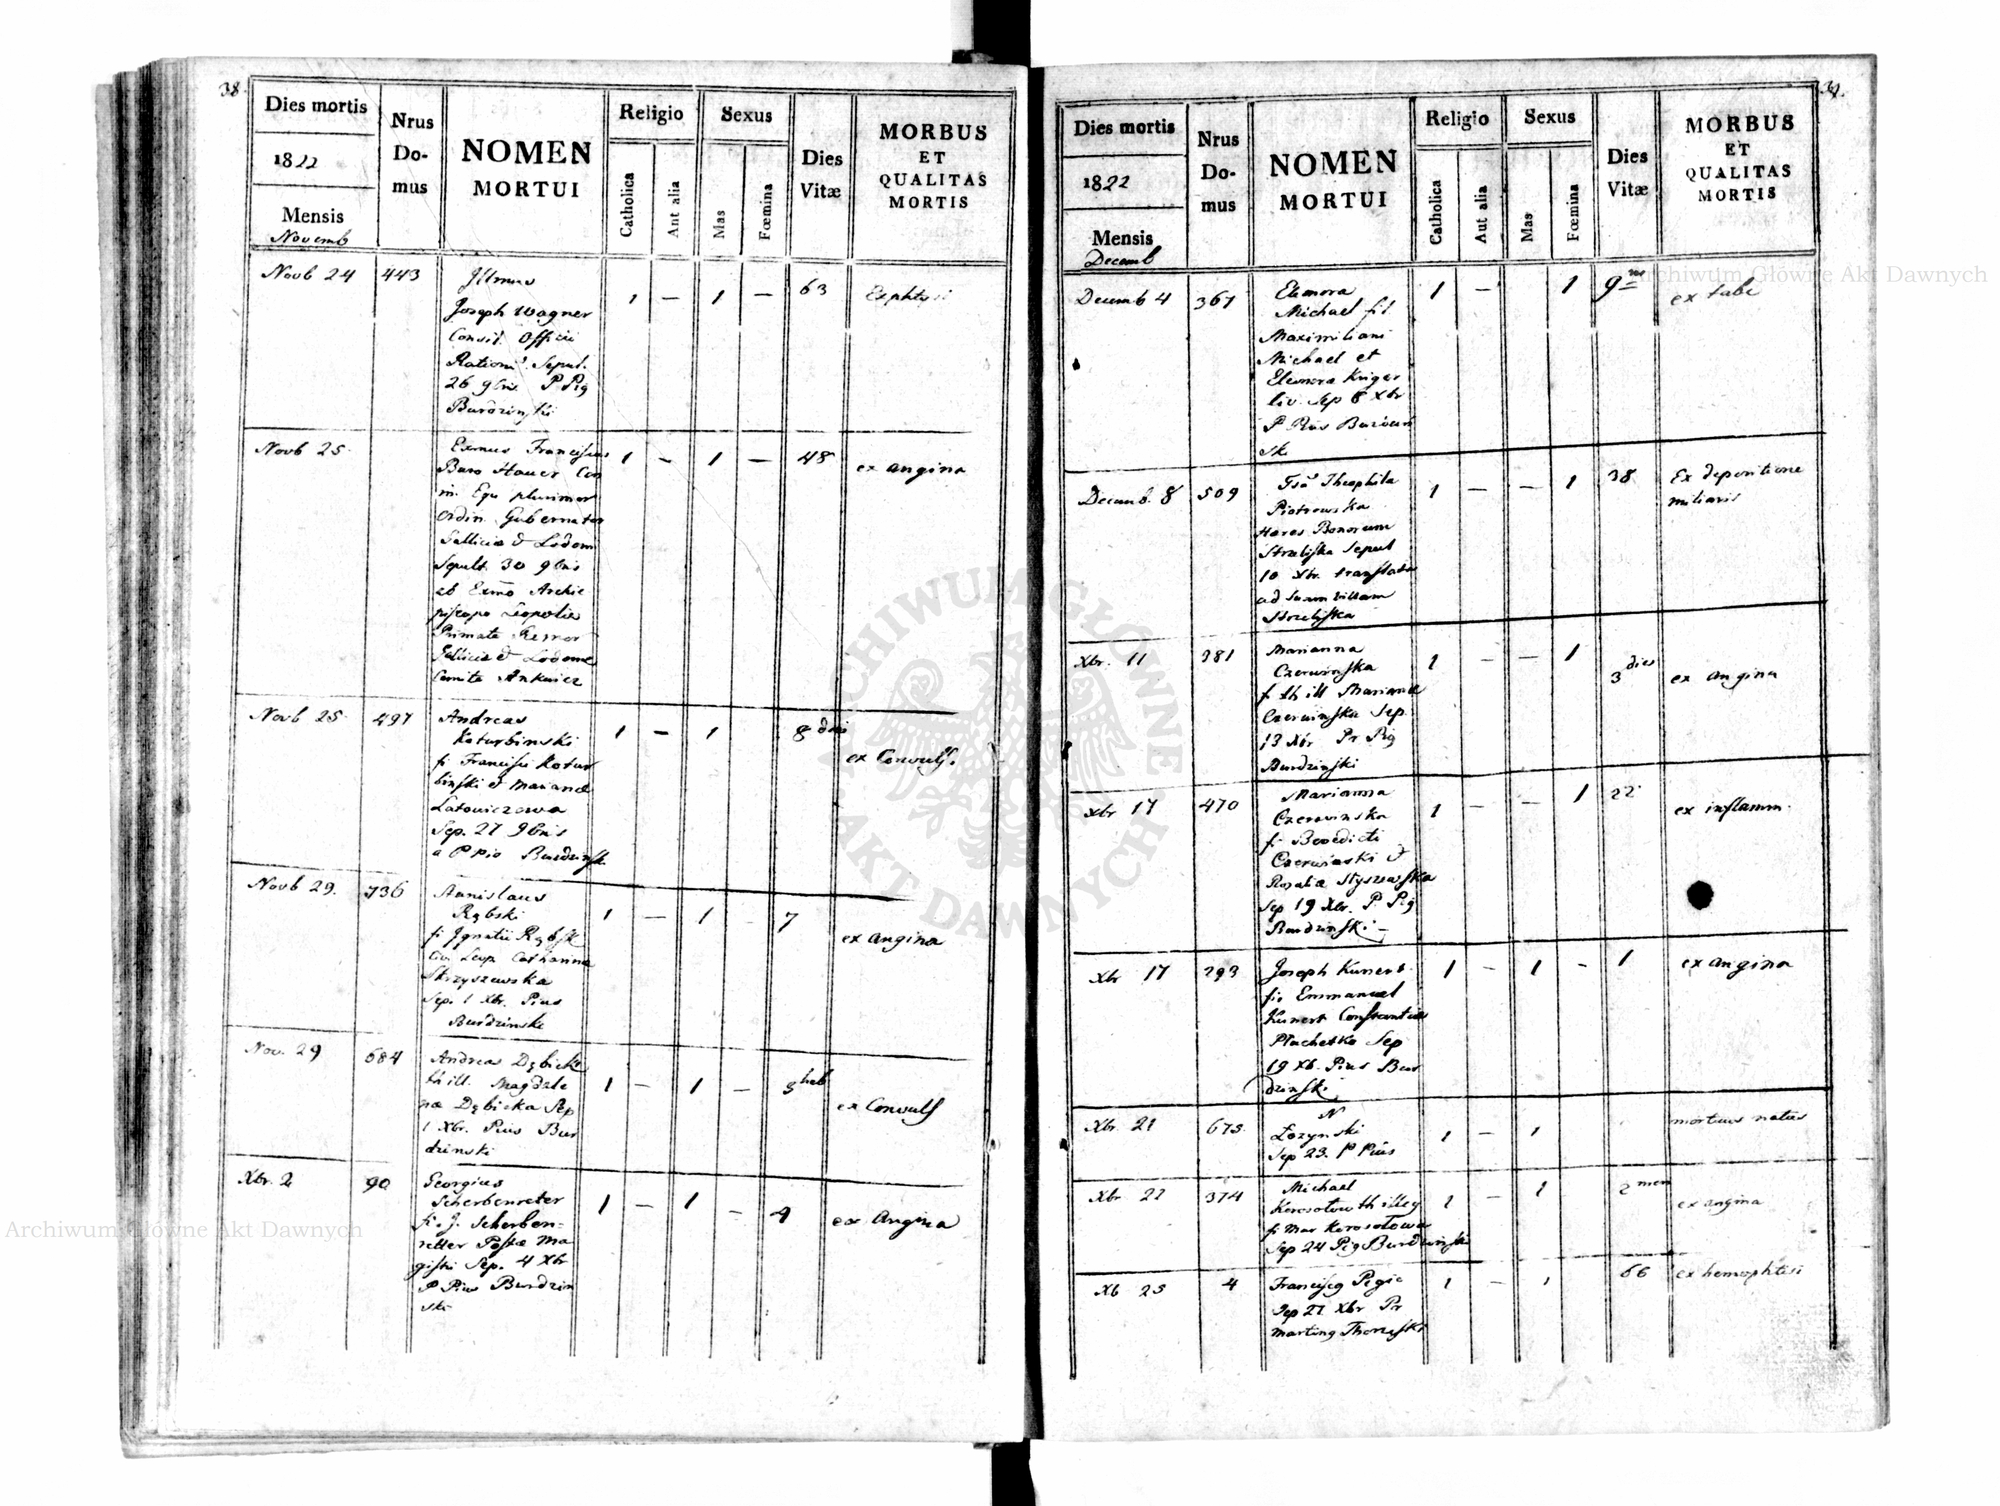 38.
Dies mortis
1822
Mensis
Novemb
Nrus
Do-
mus
NOMEN
MORTUI
Religio
Catholica
Aut alia
Sexus
Mas
Fœmina
Dies
Vitæ
MORBUS
ET
QUALITAS
MORTIS
Novb 24 443
Joseph Wagner
Consil. Officii
Sepul.
26 9bris P Pig
Burdzinski
1 — 1 — 63
Novb 25
Exmus Franciscus
Baro Hauer
plurimor
ordin. Gubernator
Galliciæ & Lodom
Sepult. 30 9bris
ab Exmo Archie
piscopo Leopolie
Primate
Galliciæ & Lodome
Comite Ankwicz
1 — 1 — 48 ex angina
Novb 25 497
Andreas
Koturbinski
fi Francisci Kotur
binski & Marianæ
Latowiczowa
Sep. 27 9bris
a P Pio Burdzinski
1 — 1
ex Convuls.
Novb 29. 736
Stanislaus
Rębski
fi Ignatii Rębsk
Civ Leop. Catharina
Skrzyszewska
Sep. 1 Xbr. Pius
Burdzinski
1 — 1 — 7 ex angina
Nov. 29 684
Andreas Dębicki
th ill. Magdale
næ Dębicka Sep
1 Xbr. Pius Bur
dzinski
1 — 1 —
ex Convuls
Xbr. 2 90
Georgius
Scherbenreter
fi. J. Scherben=
retter Postæ Ma
gistri Sep. 4 Xbr
P Pius Burdzin
ski
1 — 1 — 4 ex Angina
Dies mortis
1822
Mensis
Decemb
Nrus
Do-
mus
NOMEN
MORTUI
Religio
Catholica
Aut alia
Sexus
Mas
Fœmina
Dies
Vitæ
MORBUS
ET
QUALITAS
MORTIS
Decemb 4 367
Eleonora
Michael fil
Maximiliani
Michael et
Eleonora Kriger
Sep 6 Xbr
P Pius
ski
1 — 1 ex tabe
Decemb. 8 509
Theophila
Piotrowska
Hæres Bonorum
Strzeliska Sepul
10 Xbr. translata
ad suam villam
Strzeliska
1 — — 1 38 Ex depositione
miliaris
Xbr. 11 381
Marianna
Czerwinska
f. th ill Marianæ
Czerwinska Sep.
13 Xbr Pr Pig
Burdzinski
1 — — 1 3 dies ex angina
Xbr 17 470
Marianna
Czerwinska
fi Benedicti
Czerwinski &
Rosaliæ Styszewska
Sep 19 Xbr. P. Pig
Burdzinski
1 — — 1 22 ex inflamm.
Xbr 17 293
Joseph Kunert
fi. Emmanuel
Kunert Constantiæ
Plachetko Sep
19 Xb. Pius Bur
dzinski
1 — 1 — 1 ex angina
Xbr. 21 675.
N
Łozynski
Sep 23. P Pius
1 — 1 mortuus natus
Xbr 374
Michael
fi Mar Korosołowa
Sep 24 Pig Burdzinski
1 — 1 2 men ex angina
Xb 25 4
Sep 27 Xbr Pr
1 — 1 66
Archiwum Główne Akt Dawnych
ARCHIWUM GŁÓWNE AKT DAWNYCH
Archiwum Główne Akt Dawnych